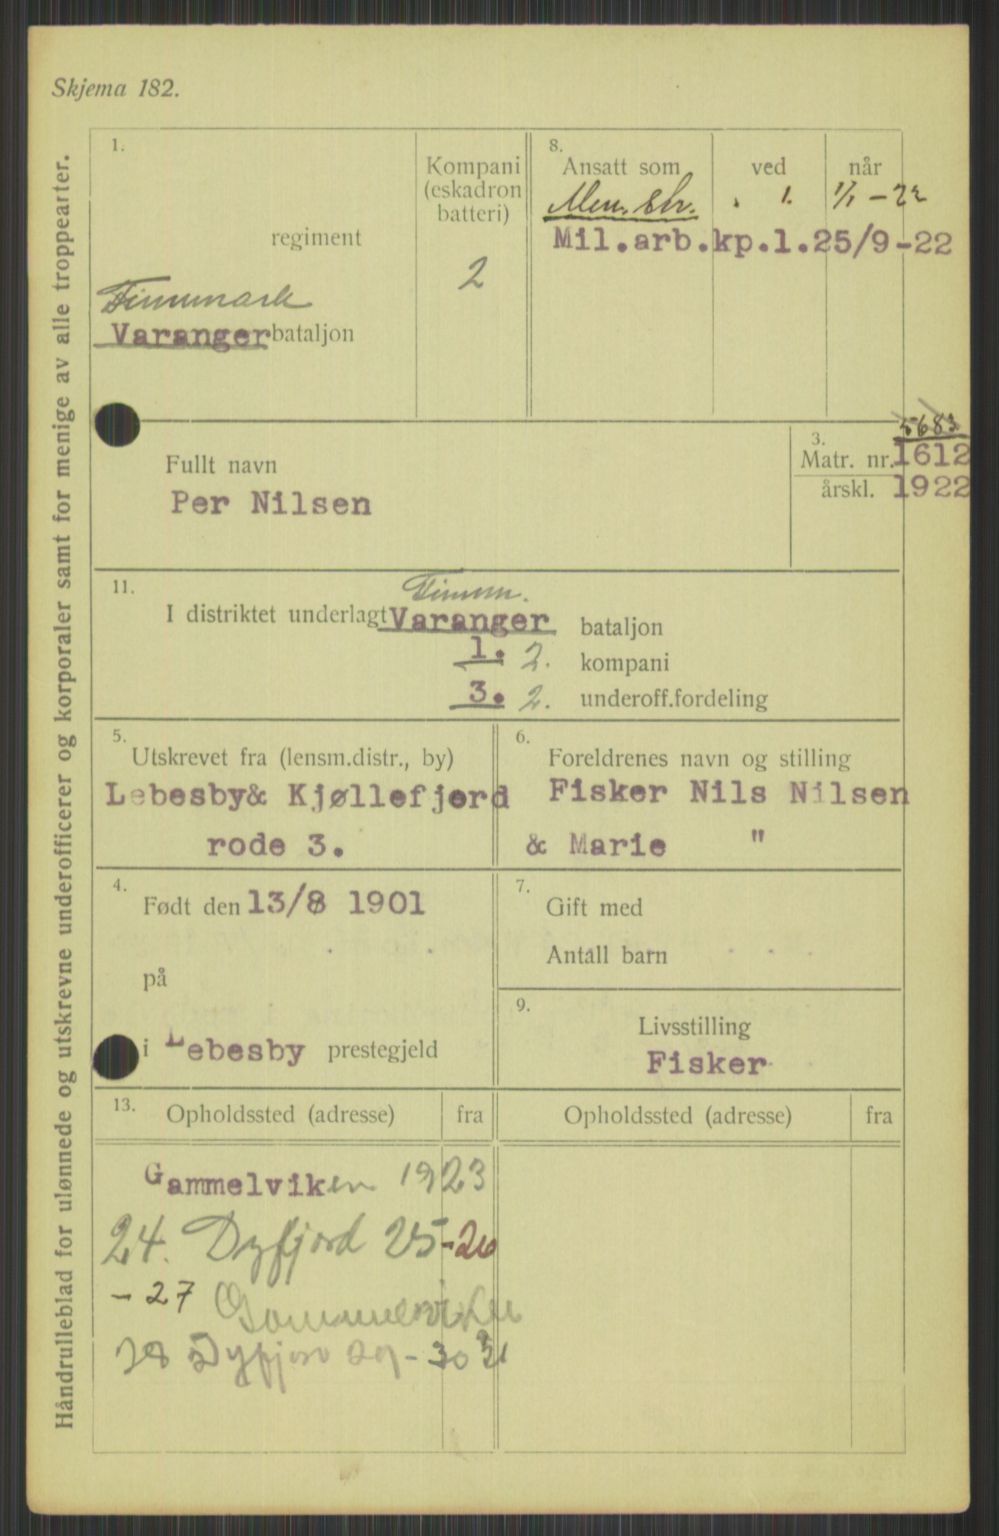 Skjema 182.
Håndrulleblad for ulønnede og utskrevne underofficerer og korporaler samt for menige av alle troppearter.
1.
regiment
Finnmark
Varanger bataljon
Kompani
(eskadron
batteri)
2
8.
Ansatt som ved når
Men. str. 1. 1/1 - 22
Mil.arb.kp.1.25/9-22
Fullt navn
Per Nilsen
5683
3.
Matr. nr. 1612
årskl. 1922
11.
Finnm.
I distriktet underlagt Varanger bataljon
1. 2. kompani
3. 2. underoff.fordeling
5.
Utskrevet fra (lensm.distr., by)
Lebesby& Kjøllefjord
rode 3.
6.
Foreldrenes navn og stilling
Fisker Nils Nilsen
& Marie "
4.
Født den 13/8 1901
på
i Lebesby prestegjeld
7.
Gift med
Antall barn
9.
Livsstilling
Fisker
13.
Opholdssted (adresse) fra Opholdssted (adresse) fra
Gammelviken 1923
24. Dyfjord 25-26
- 27 Gammelviken
28 Dyfjord 29-30 31